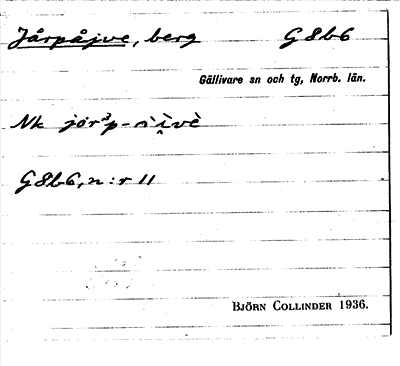 Jårpåjve, berg G8b6
Gällivare sn och tg, Norrb. län.
Nk
G8b6, n:r 11
BJÖRN COLLINDER 1936.